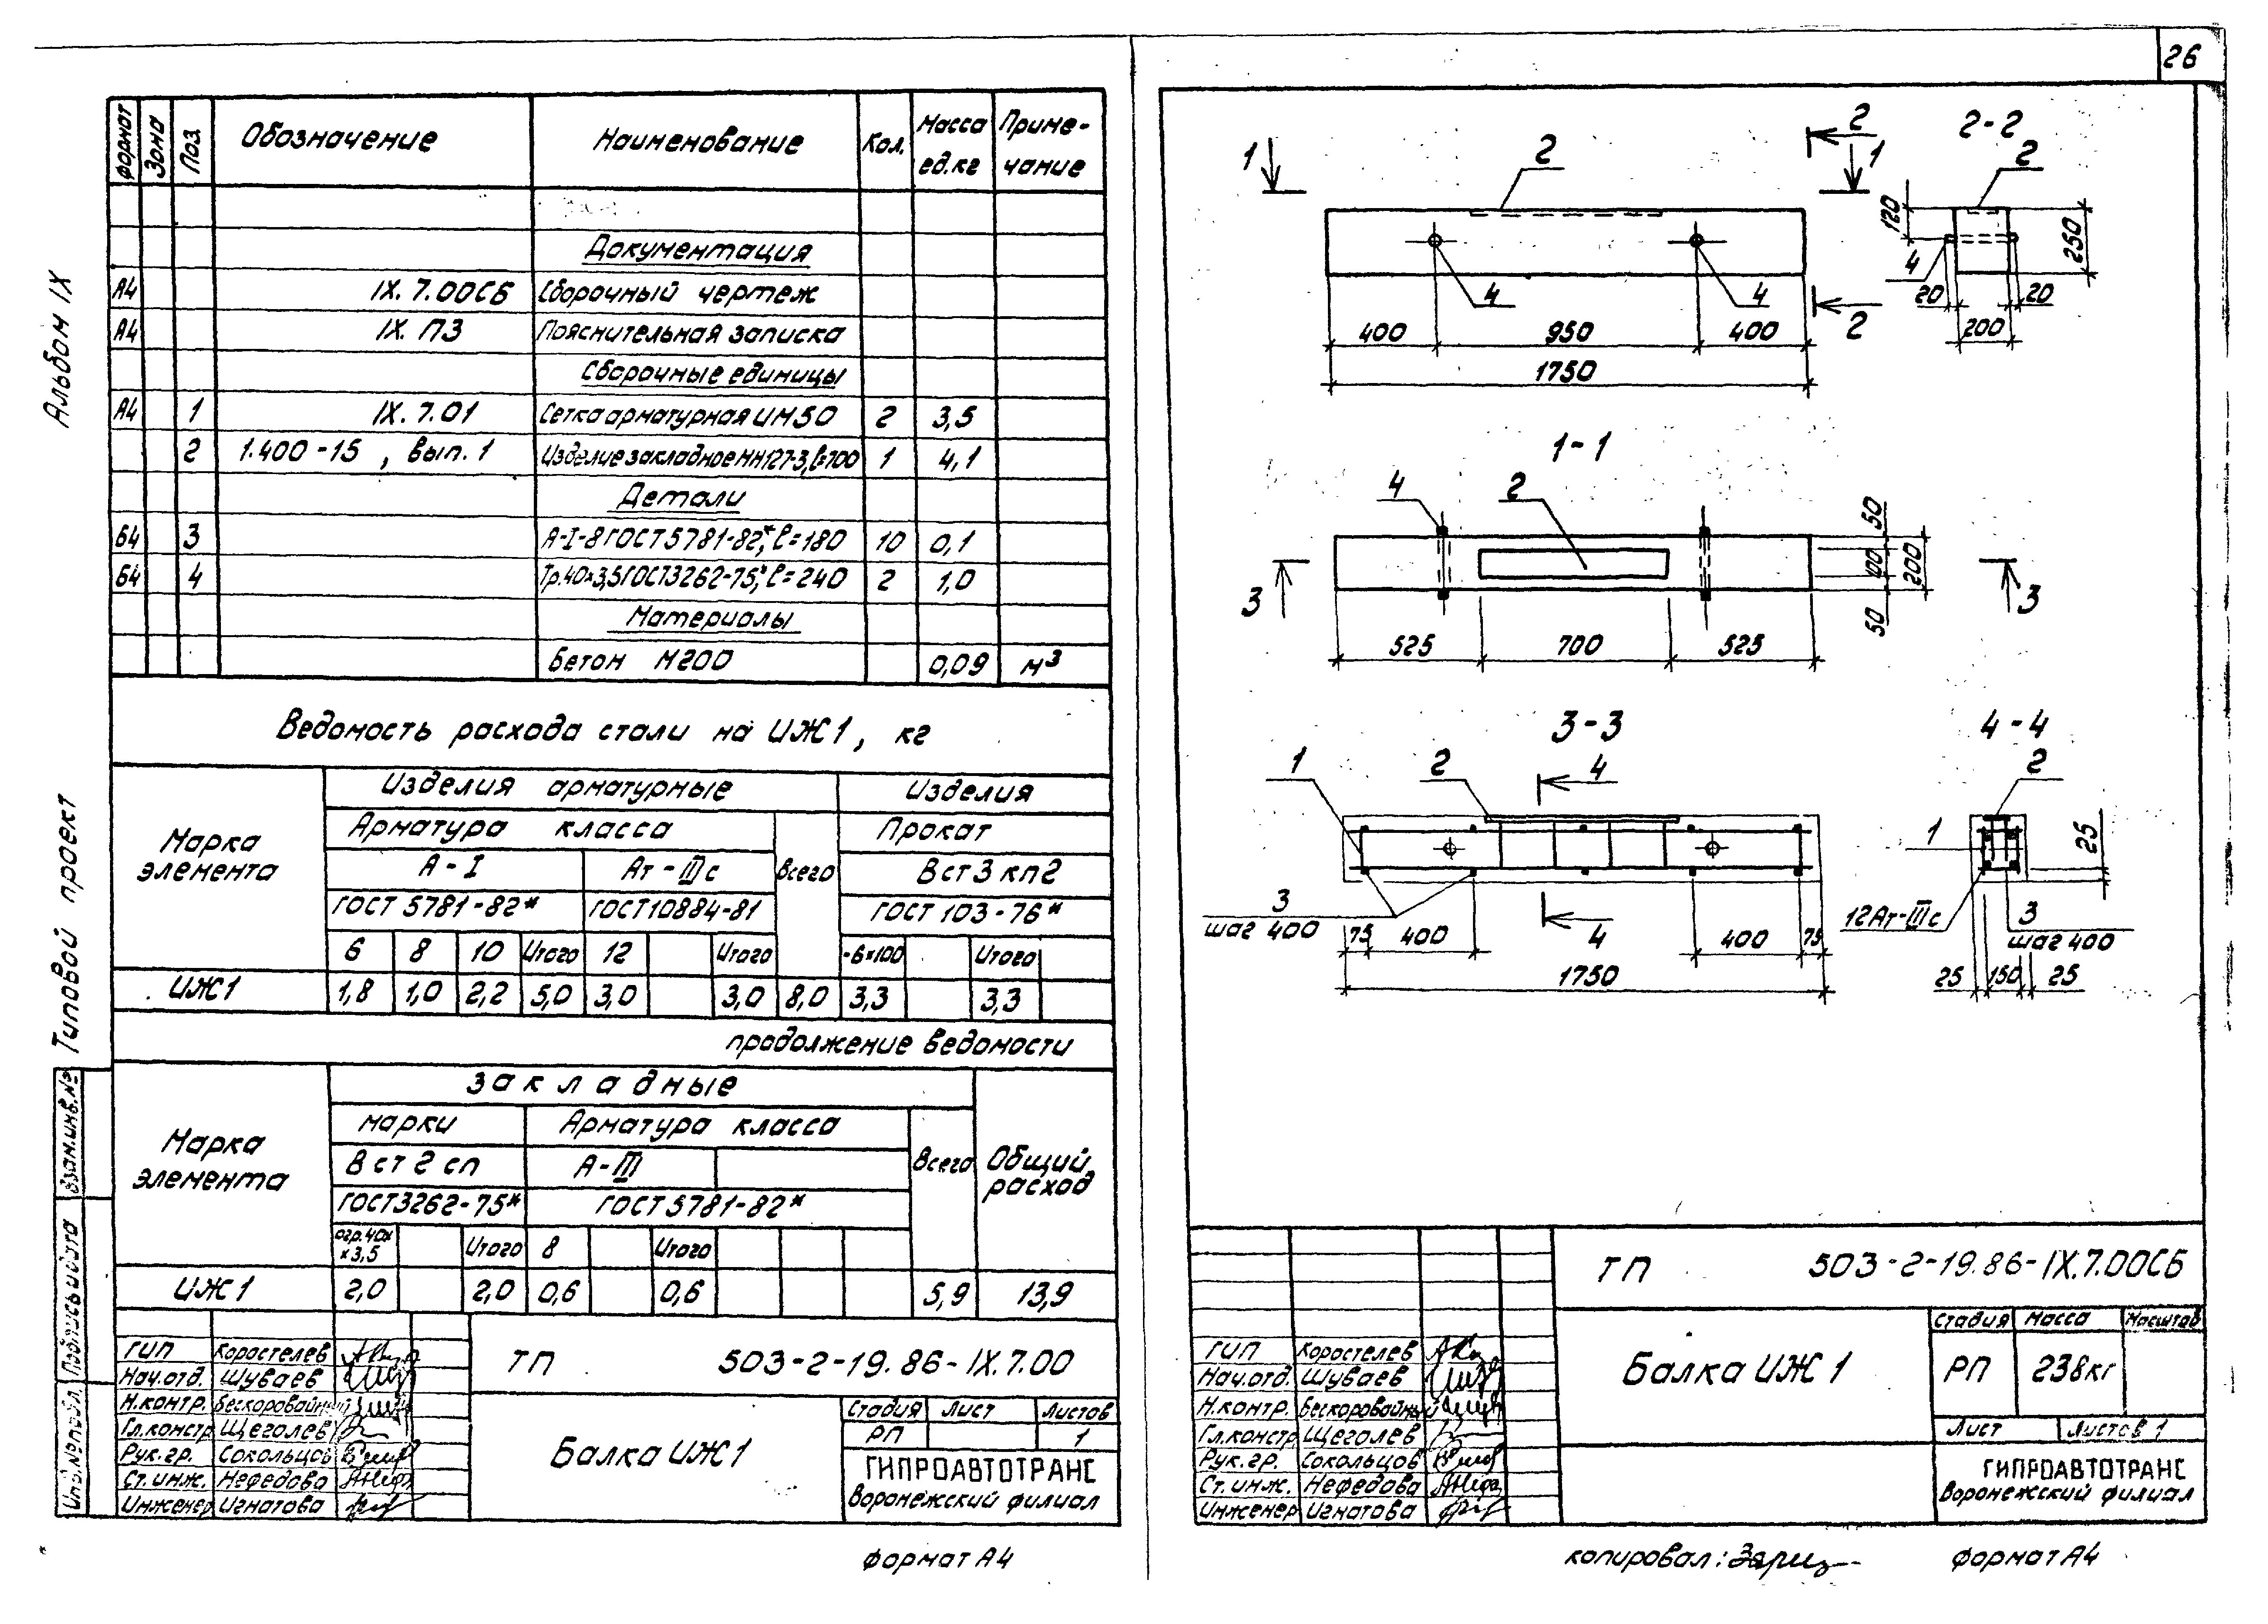 26
Альбом IX
Типовой проект
Взам.инв.№
Подпись и дата
Инв.№подл.
Формат Зона Поз. Обозначение Наименование Кол. Масса ед.кг Приме-чание
Документация
А4 IX.7.00СБ Сборочный чертеж
А4 IX.ПЗ Пояснительная записка
Сборочные единицы
А4 1 IX.7.01 Сетка арматурная ИМ50 2 3,5
2 1.400-15, вып.1 Изделие закладное МН127-3, ℓ=700 1 4,1
Детали
Б4 3 А-I-8 ГОСТ 5781-82*, ℓ=180 10 0,1
Б4 4 Тр.40×3,5 ГОСТ3262-75*, ℓ=240 2 1,0
Материалы
Бетон М200 0,09 м³
Ведомость расхода стали на ИЖ1, кг
Марка элемента
Изделия арматурные Изделия
Арматура класса Всего Прокат
А-I Ат-IIIс Вст3кп2
ГОСТ 5781-82* ГОСТ10884-81 ГОСТ 103-76*
6 8 10 Итого 12 Итого -6×100 Итого
ИЖ1 1,8 1,0 2,2 5,0 3,0 3,0 8,0 3,3 3,3
продолжение ведомости
Марка элемента
закладные Общий расход
марки Арматура класса Всего
Вст2сп А-III
ГОСТ3262-75* ГОСТ5781-82*
отр.40× ×3,5 Итого 8 Итого
ИЖ1 2,0 2,0 0,6 0,6 5,9 13,9
ГИП Коростелев
Нач.отд. Шуваев
Н.контр. Бескоровайный
Гл.констр Щеголев
Рук.гр. Сокольцов
Ст.инж. Нефедова
Инженер Игнатова
ТП 503-2-19.86-IX.7.00
Балка ИЖ1
Стадия Лист Листов
РП 1
ГИПРОАВТОТРАНС
Воронежский филиал
формат А4
1 2 2 1
4 4 2
400 950 400
1750
2-2
2
120 250
4
20 20
200
1-1
4 2
50 100 50 200
3 3
525 700 525
3-3
1 2 4
3
шаг 400
4
75 400 400 75
1750
4-4
2
1
25
12Ат-IIIс
3
шаг 400
25 150 25
ТП 503-2-19.86-IX.7.00СБ
Балка ИЖ1
Стадия Масса Масштаб
РП 238кг
Лист Листов 1
ГИП Коростелев
Нач.отд. Шуваев
Н.контр. Бескоровайный
Гл.констр Щеголев
Рук.гр. Сокольцов
Ст.инж. Нефедова
Инженер Игнатова
ГИПРОАВТОТРАНС
Воронежский филиал
копировал:
формат А4